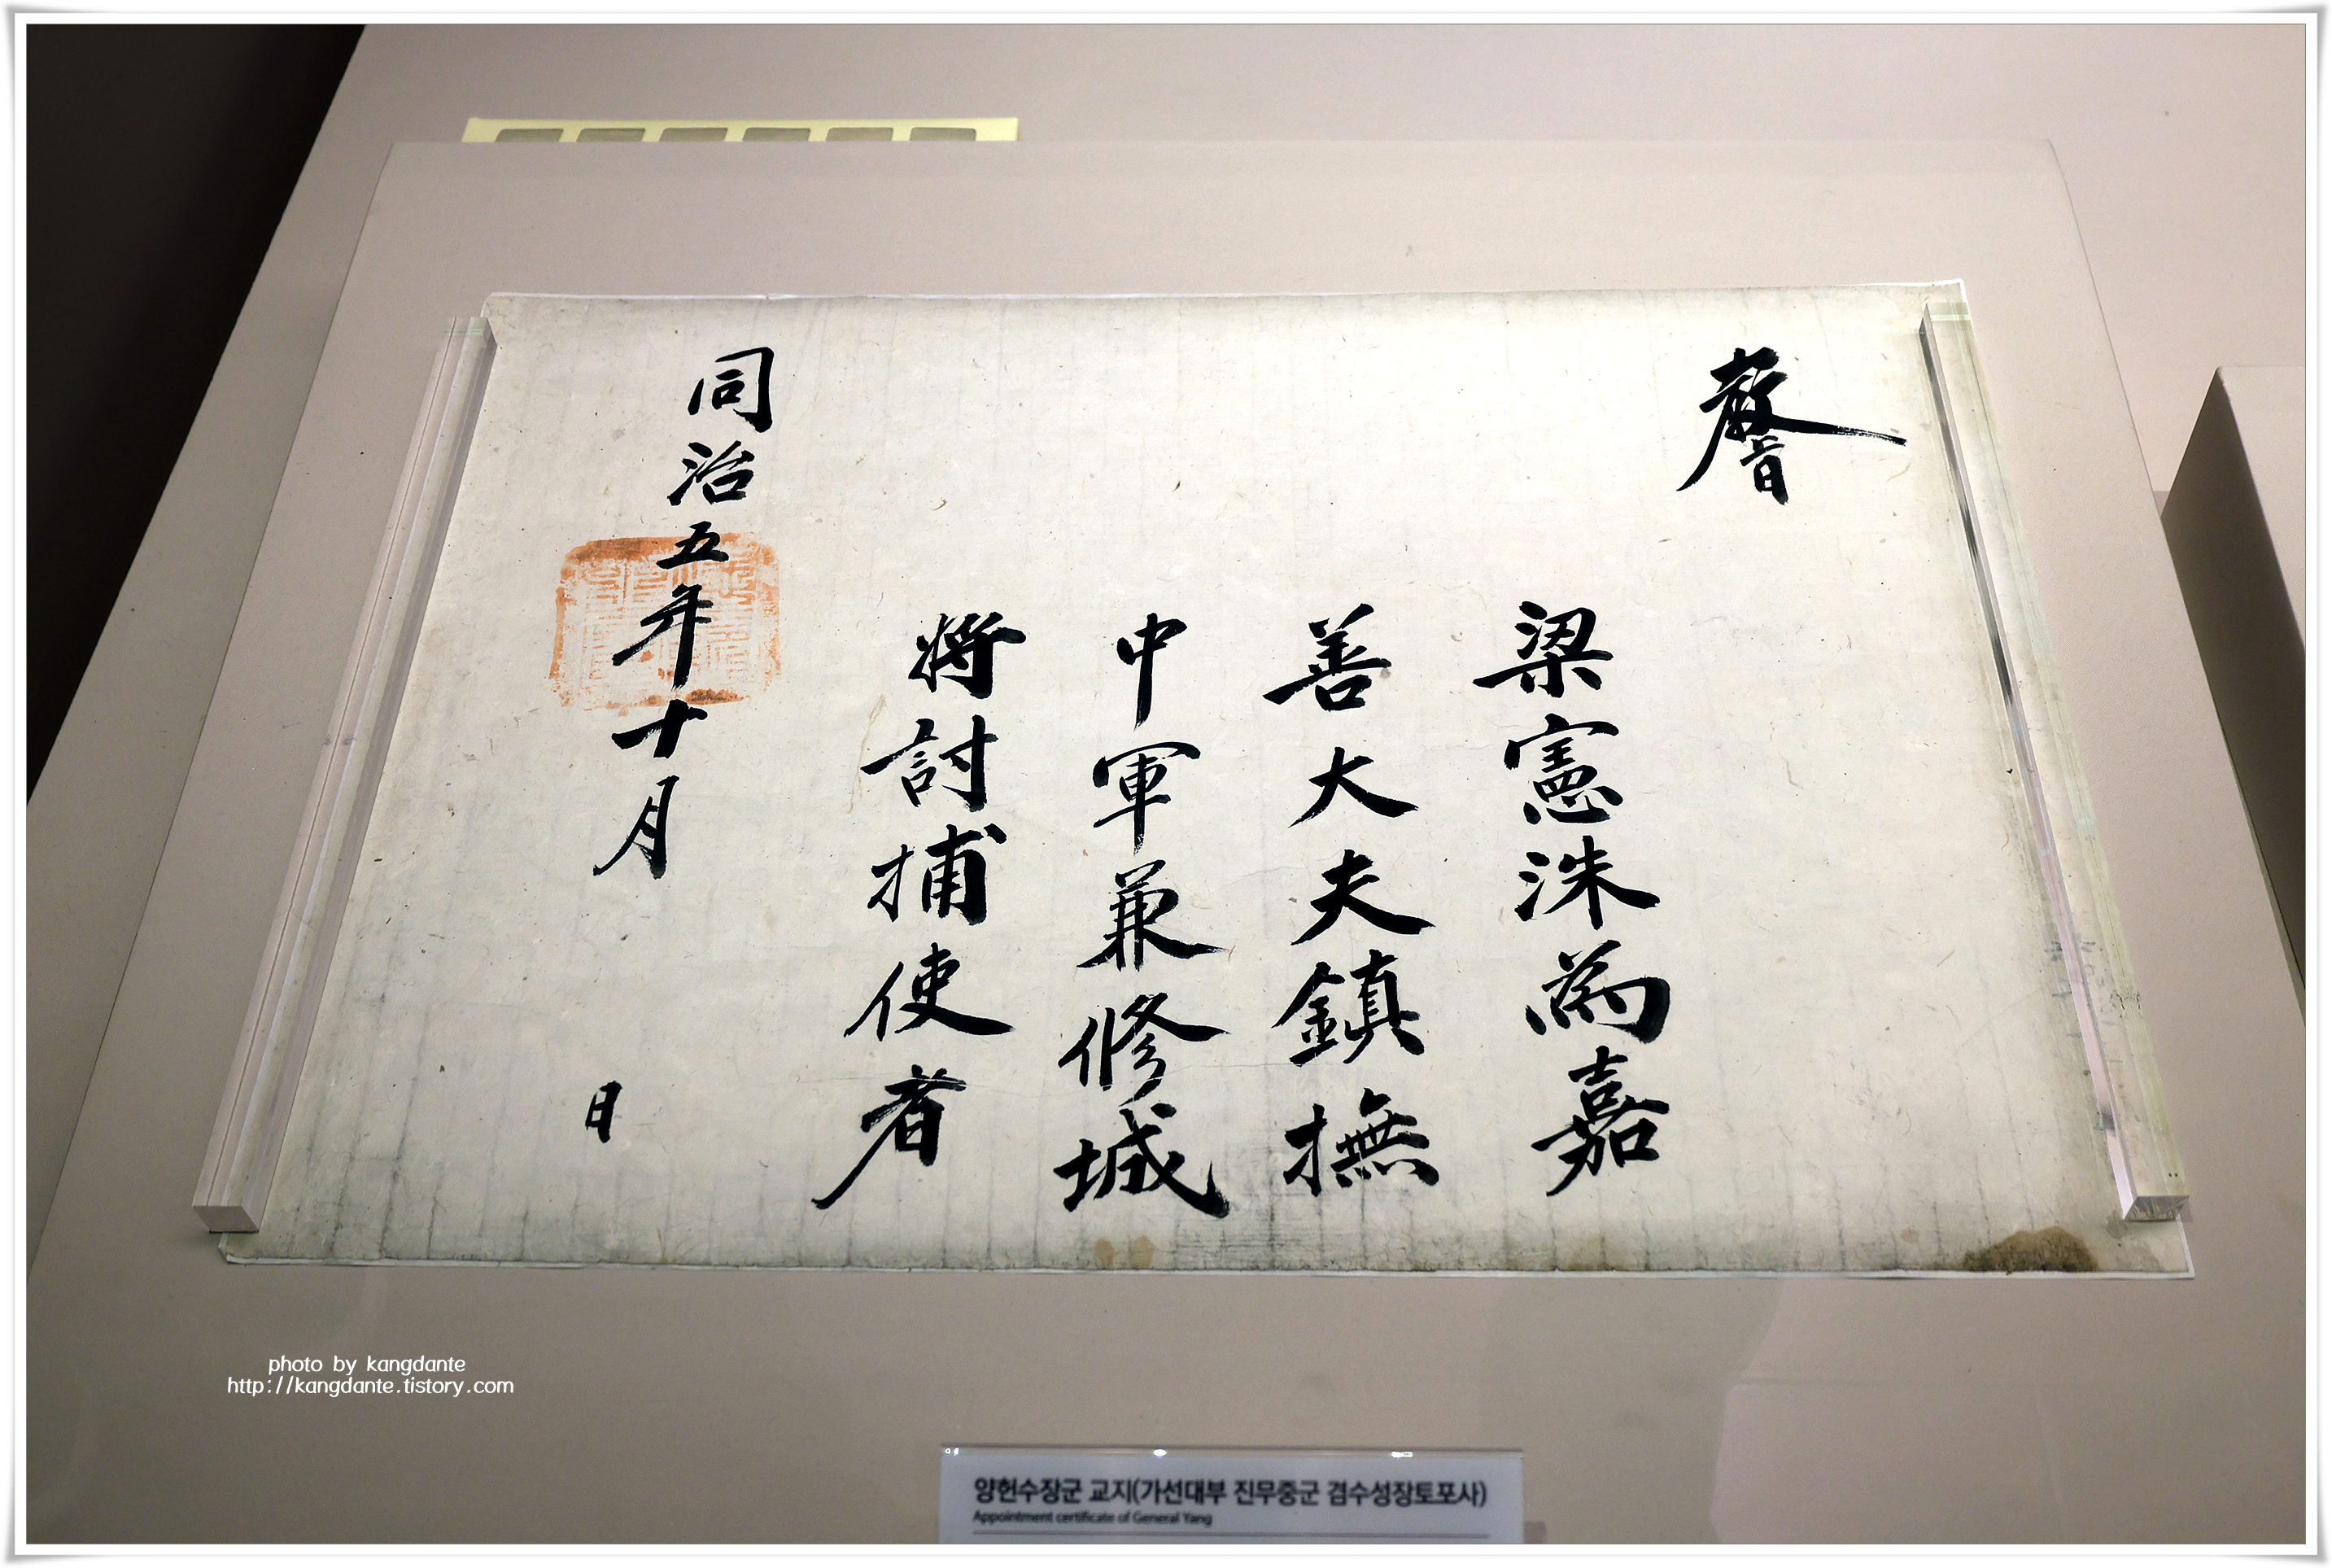 教旨
梁憲洙為嘉
善大夫鎮撫
中軍兼修城
將討捕使者
同治五年十月 日
photo by kangdante
http://kangdante.tistory.com
양헌수장군 교지(가선대부 진무중군 겸수성장토포사)
Appointment certificate of General Yang